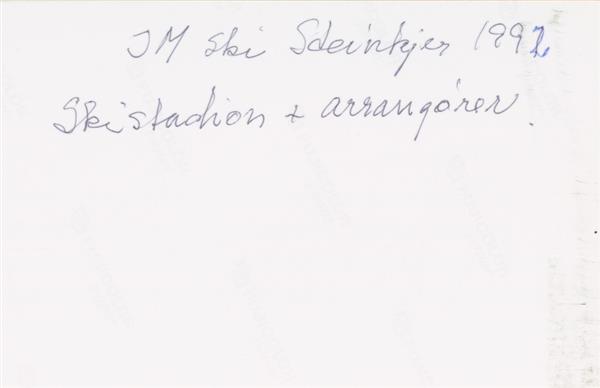 JM Ski Steinkjer 1992
Skistadion + arrangører.